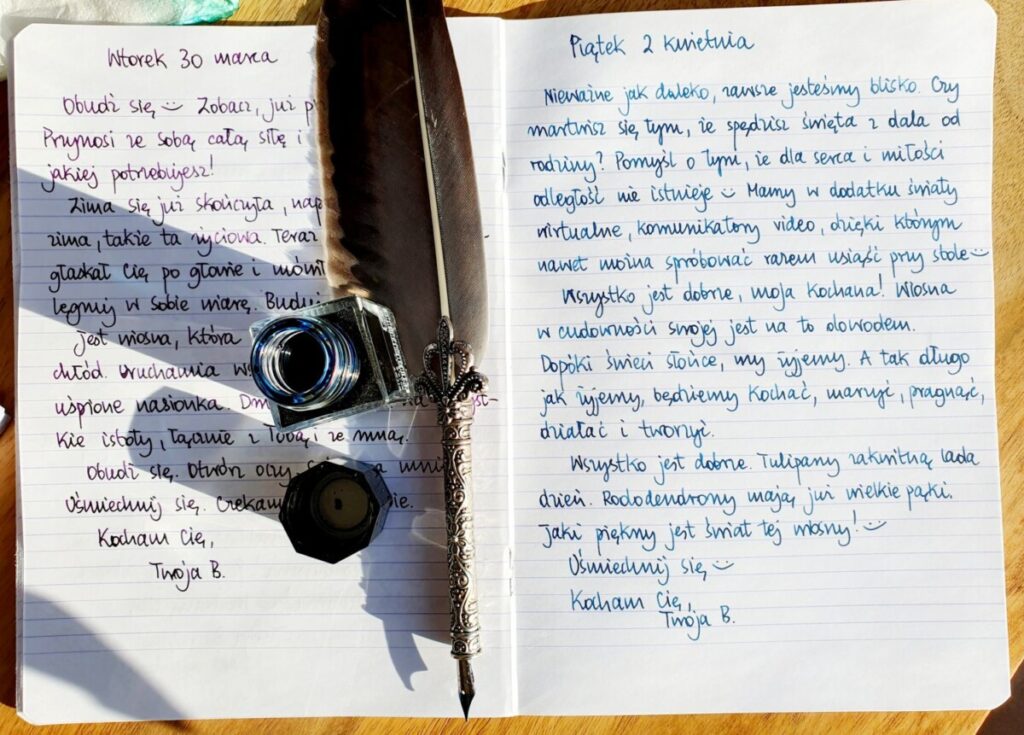 Wtorek 30 marca
Obudź się ☺ Zobacz, już
Przynosi ze sobą całą siłę i
jakiej potrzebujesz!
Zima się już skończyła,
zima, także ta życiowa. Teraz
głaskał Cię po głowie i
w sobie wiarę.
Jest wiosna, która
chłód. Uruchamia
uśpione nasionka.
kie istoty, łącznie z Tobą i ze mną.
Obudź się. Otwórz oczy.
Uśmiechnij się. Czekam
Kocham Cię,
Twoja B.
Piątek 2 kwietnia
Nieważne jak daleko, zawsze jesteśmy blisko. Czy
martwisz się tym, że spędzisz święta z dala od
rodziny? Pomyśl o tym, że dla serca i miłości
odległość nie istnieje ☺ Mamy w dodatku światy
wirtualne, komunikatory video, dzięki którym
nawet można spróbować razem usiąść przy stole ☺
Wszystko jest dobrze, moja Kochana! Wiosna
w cudowności swojej jest na to dowodem.
Dopóki świeci słońce, my żyjemy. A tak długo
jak żyjemy, będziemy kochać, marzyć, pragnąć,
działać i tworzyć.
Wszystko jest dobrze. Tulipany zakwitną lada
dzień. Rododendrony mają już wielkie pąki.
Jaki piękny jest świat tej wiosny! ☺
Uśmiechnij się ☺
Kocham Cię,
Twoja B.